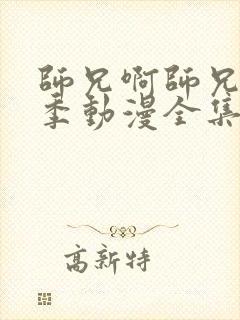 師兄啊師兄
季動漫全集
高新特